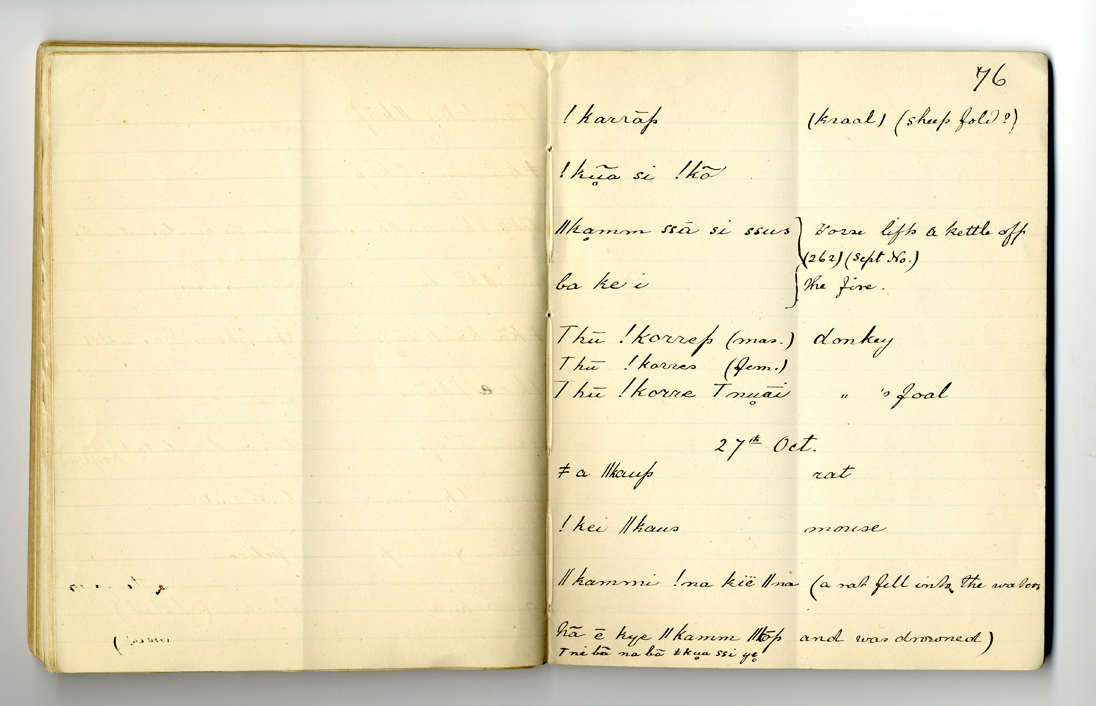 76
!karrāp (kraal) (sheep fold?)
!kũ̥a si !kõ
ǁkḁmm ssā si ssus } Torse lifts a kettle off
(262) (Sept No.)
ba ke i } the fire.
Thū !korrep (mas.) donkey
Thū !korres (fem.)
Thū !korre Tnu̥āi " 's foal
27th Oct.
ǂ a ǁkaup rat
!kei ǁkaus mouse
ǁkammi !na kïë ǁna (a rat fell into the water
hā ē kye ǁkamm ǁōp and was drowned)
Tni bā na bā ǂku̥a ssi ye̥